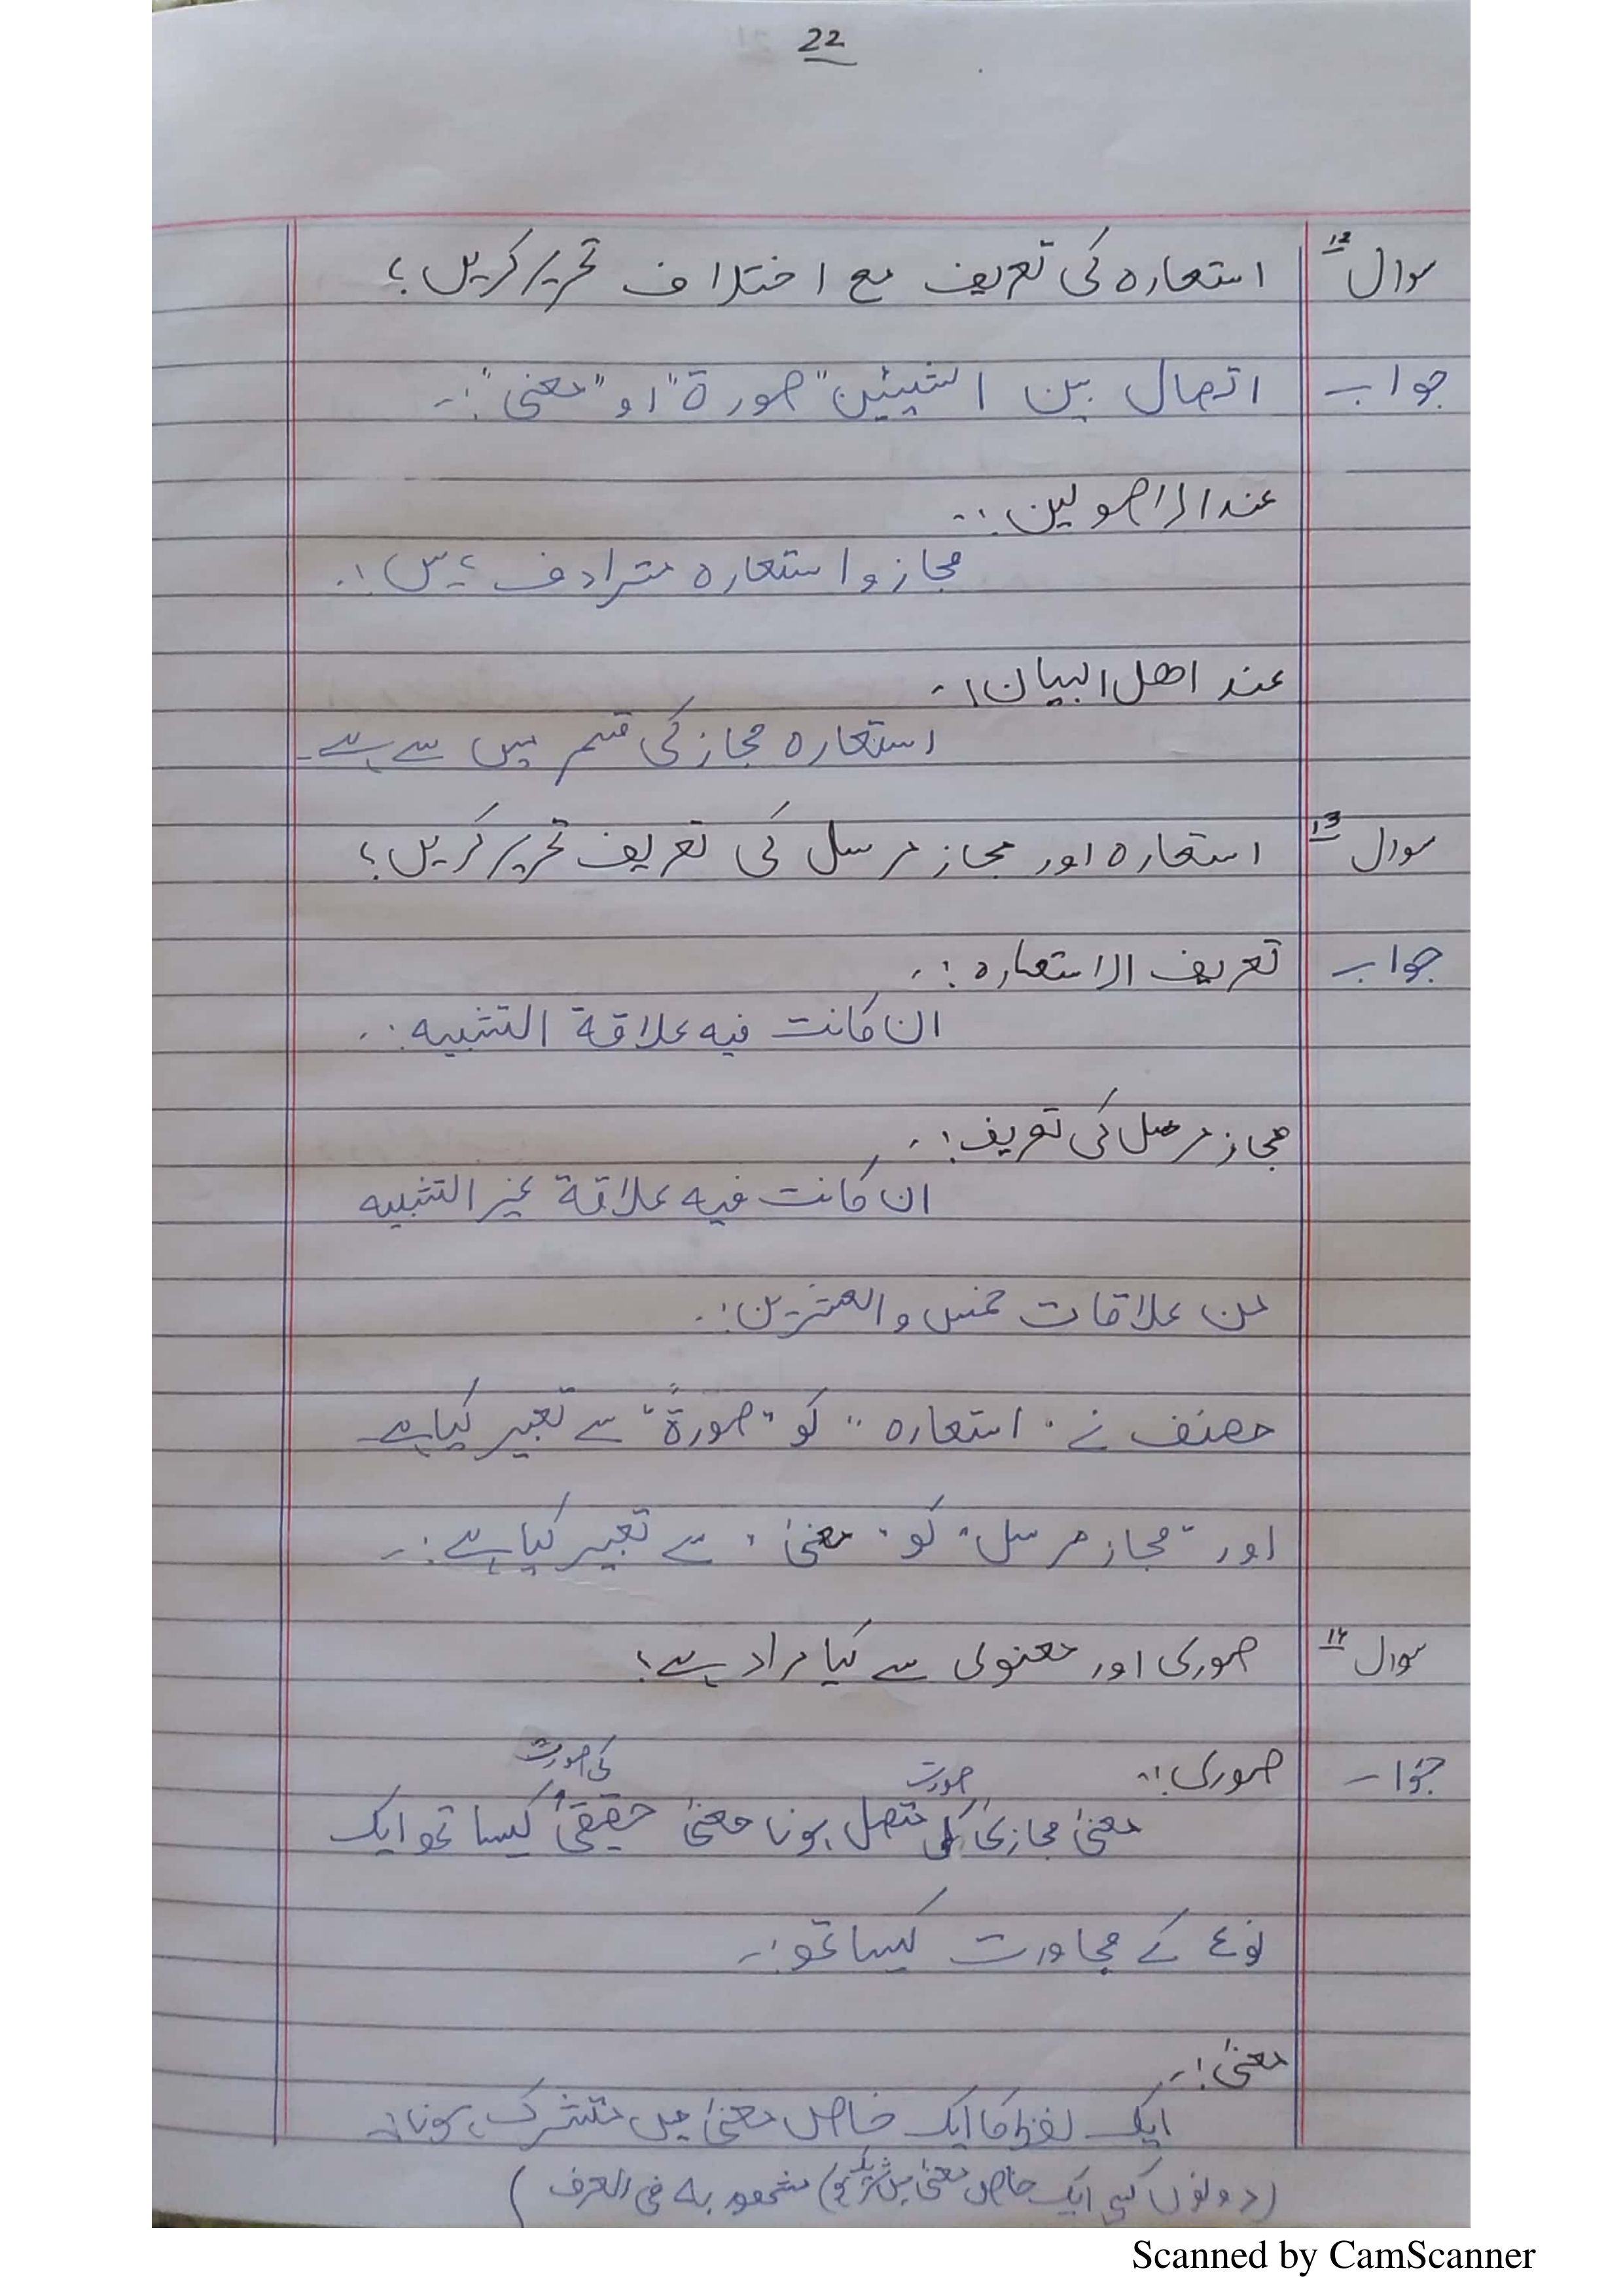 22
سوال ۱۲ استعارہ کی تعریف مع اختلاف تحریر کریں؟
جواب اتصال بین الشیئین "صورة" او "معنی":۔
عند الاصولین:۔
مجاز و استعارہ مترادف ہیں:۔
عند اھل البیان:۔
استعارہ مجاز کی قسم میں سے ہے۔
سوال ۱۳ استعارہ اور مجاز مرسل کی تعریف تحریر کریں؟
جواب تعریف الاستعارہ:۔
ان کانت فیه علاقة التشبیه:۔
مجاز مرسل کی تعریف:۔
ان کانت فیه علاقة غیر التشبیه
من علاقات خمس والعشرین:۔
مصنف نے "استعارہ" کو "صورةً" سے تعبیر کیا ہے
اور "مجاز مرسل" کو "معنیٰ" سے تعبیر کیا ہے:۔
سوال ۱۴ صوری اور معنوی سے کیا مراد ہے؟
جواب صوری:۔
معنیٰ مجازی کی صورت متصل ہونا معنیٰ حقیقی کی صورت کیساتھ ایک
نوع کے مجاورت کیساتھ:۔
معنیٰ:۔
ایک لفظ کا ایک خاص معنیٰ میں مشترک ہونا:۔
(دونوں کسی ایک خاص معنیٰ میں شریک ہو) مشهور به فی العرف)
Scanned by CamScanner